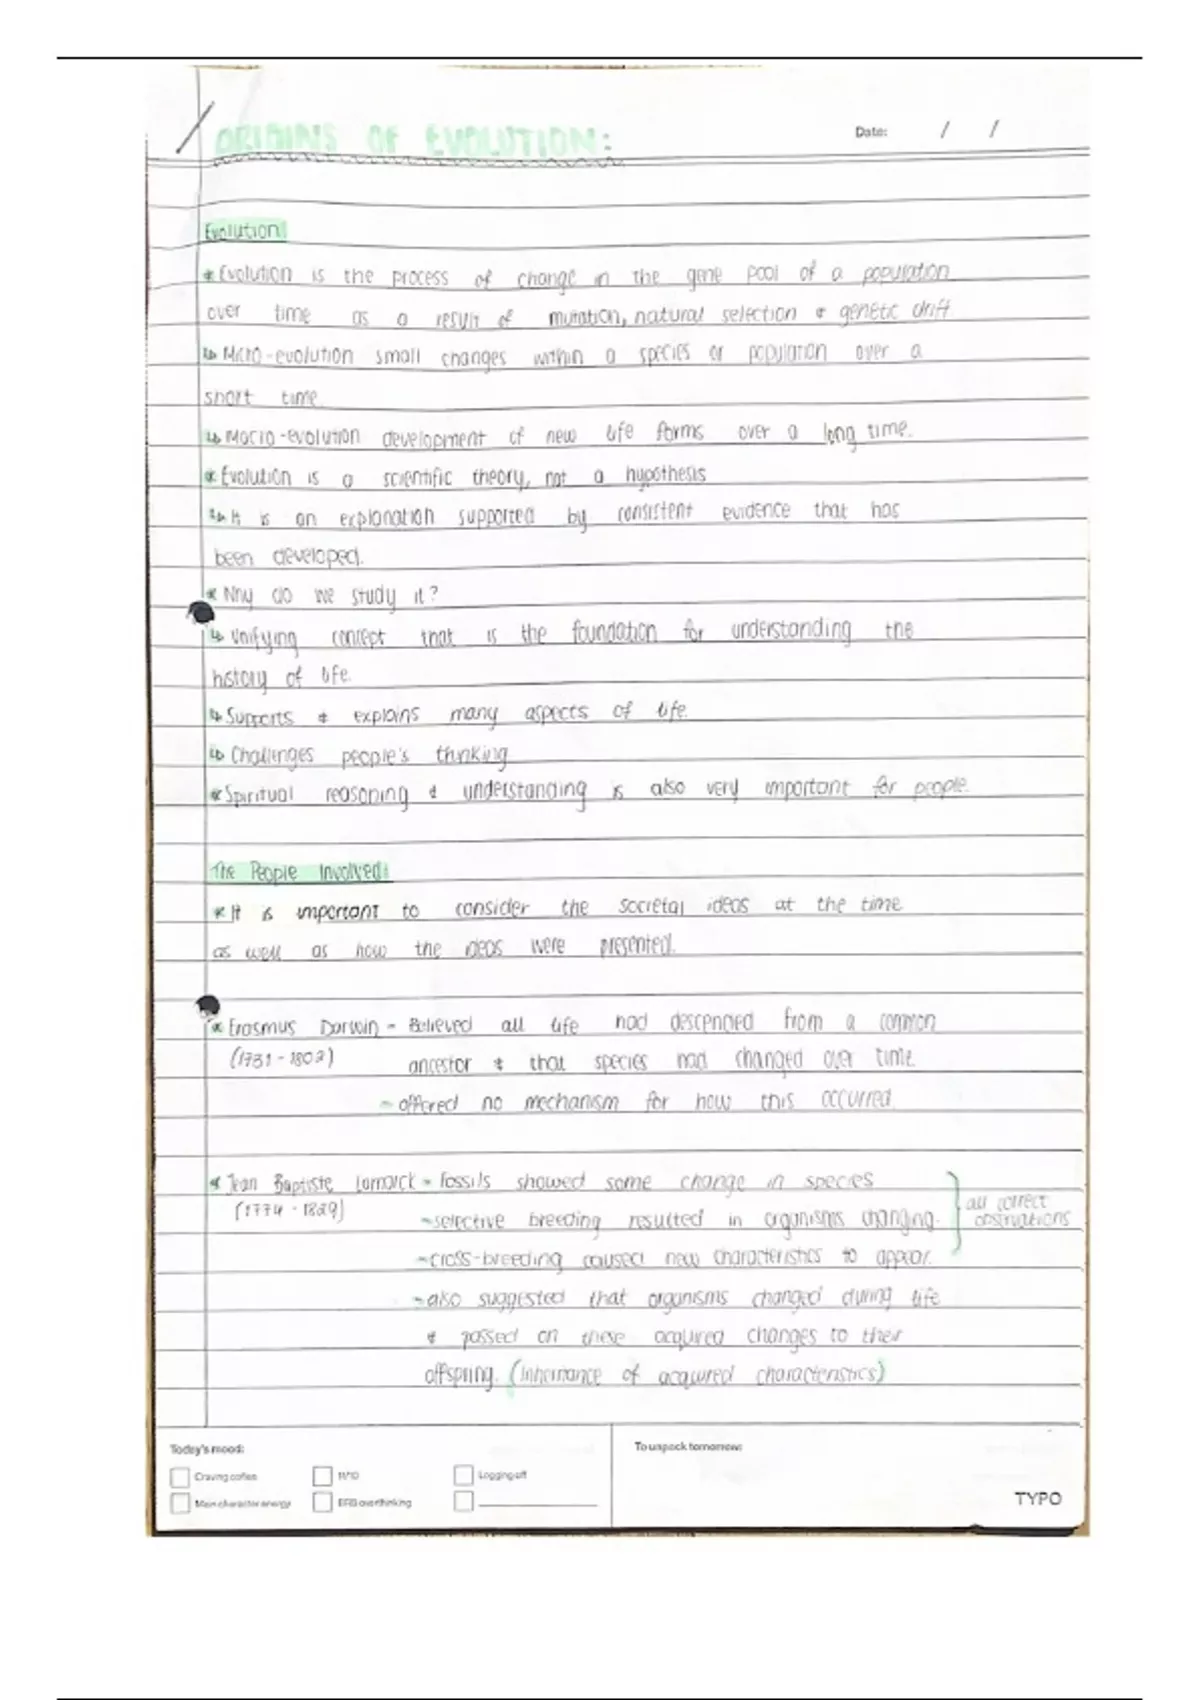 ORIGINS OF EVOLUTION:
Date: / /
Evolution:
* Evolution is the process of change in the gene pool of a population
over time as a result of mutation, natural selection & genetic drift
↳ Micro-evolution small changes within a species or population over a
short time.
↳ Macro-evolution development of new life forms over a long time.
* Evolution is a scientific theory, not a hypothesis
↳ It is an explanation supported by consistent evidence that has
been developed.
* Why do we study it?
↳ Unifying concept that is the foundation for understanding the
history of life.
↳ Supports & explains many aspects of life.
↳ Challenges people's thinking
* Spiritual reasoning & understanding is also very important for people.
The People Involved:
* It is important to consider the societal ideas at the time
as well as how the ideas were presented.
* Erasmus Darwin - Believed all life had descended from a common
(1731-1802) ancestor & that species had changed over time.
- offered no mechanism for how this occurred.
* Jean Baptiste Lamarck - fossils showed some change in species
(1774-1829) - selective breeding resulted in organisms changing.
- cross-breeding caused new characteristics to appear.
all correct
observations
- also suggested that organisms changed during life
& passed on these acquired changes to their
offspring. (inheritance of acquired characteristics)
Today's mood:
Craving coffee
Logging off
Main character energy
EFB overthinking
To unpack tomorrow:
TYPO